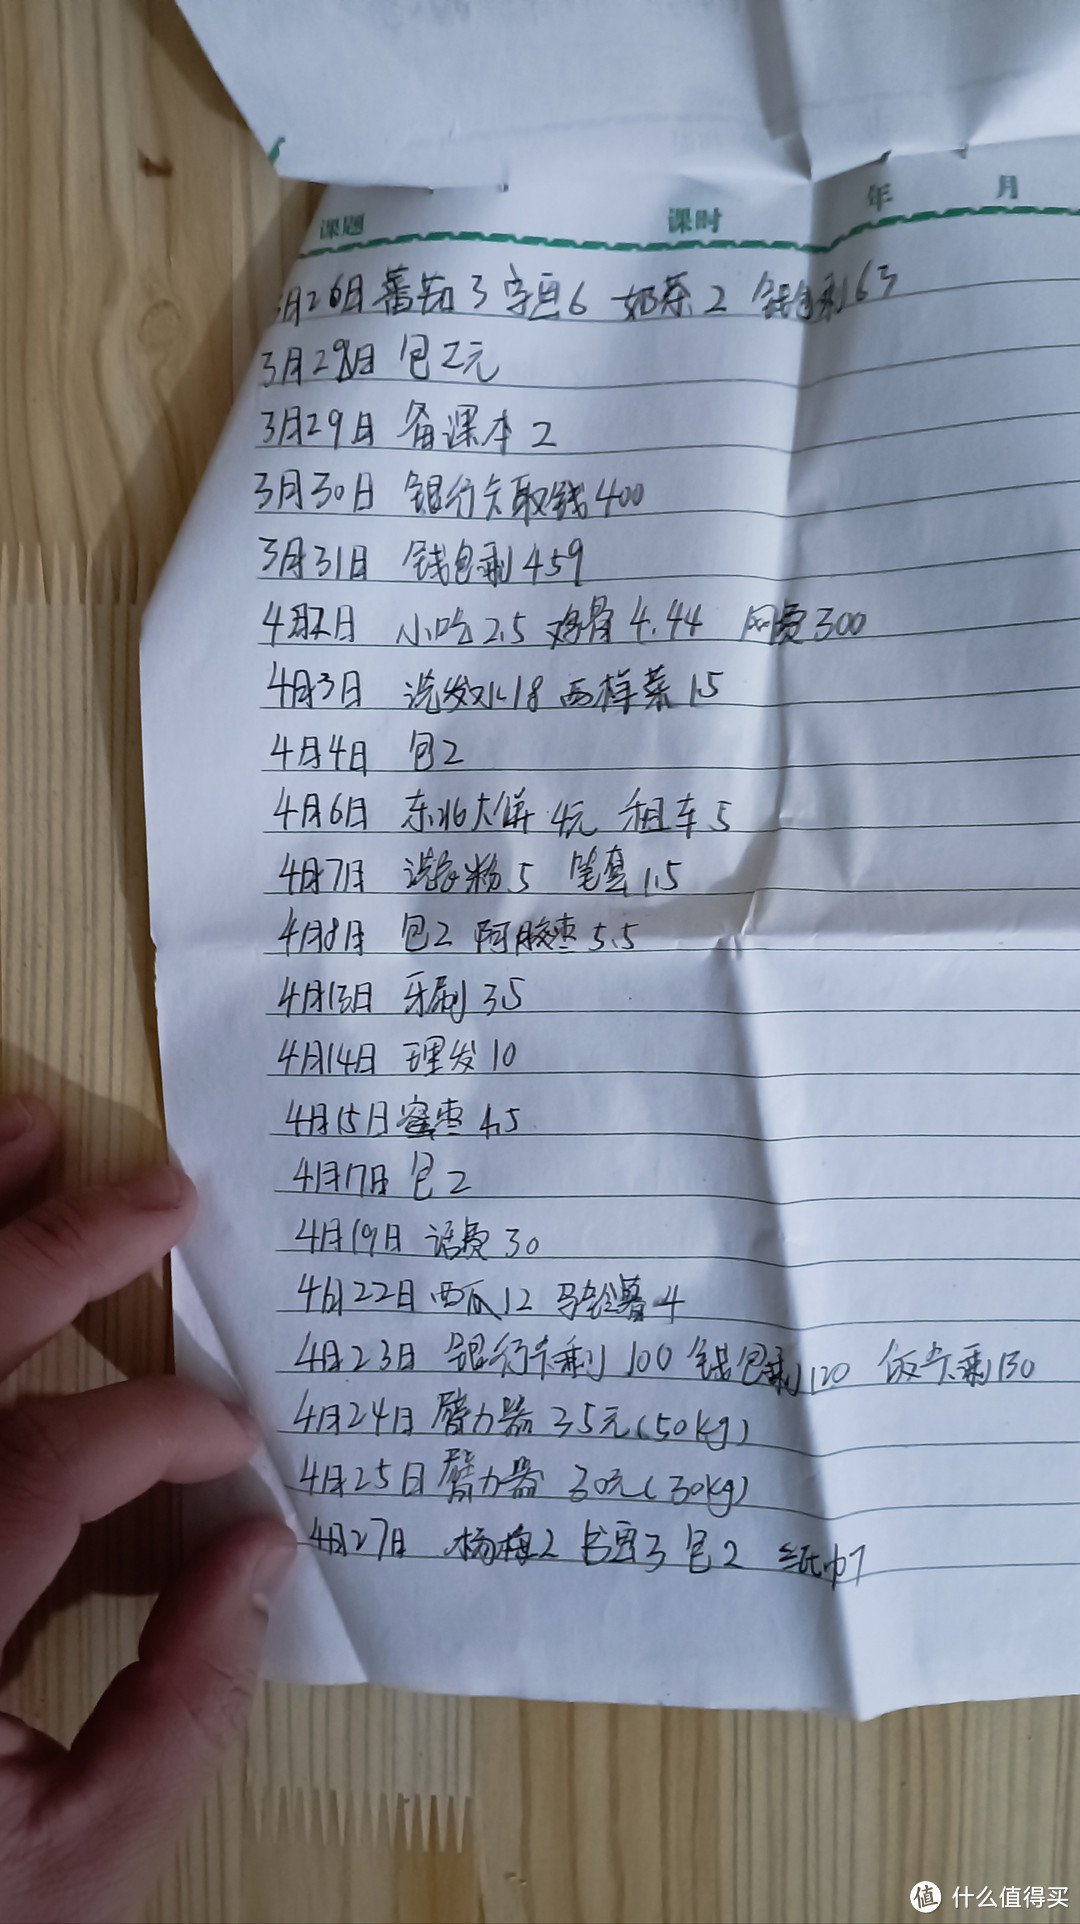 课题 课时 年 月
3月26日 蕃茄3 6 奶茶2 钱包剩63
3月28日 包2元
3月29日 备课本2
3月30日 银行卡取钱400
3月31日 钱包剩459
4月2日 小吃2.5 鸡骨4.44 网费300
4月3日 洗发水18 两样菜1.5
4月4日 包2
4月6日 东北大饼4元 租车5
4月7日 洗衣粉5 笔套1.5
4月8日 包2 阿胶枣5.5
4月13日 牙刷3.5
4月14日 理发10
4月15日 蜜枣4.5
4月17日 包2
4月19日 话费30
4月22日 西瓜12 马铃薯4
4月23日 银行卡剩100 钱包剩120 饭卡剩130
4月24日 臂力器35元(50kg)
4月25日 臂力器30元(30kg)
4月27日 杨梅2 3 包2 纸巾7
值 什么值得买